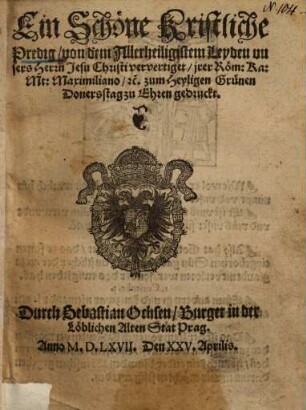 N. 104.
Ein Schöne Kristliche
Predig / von dem Allerheiligstem Leyden vn
sers Herrn Jesu Christi ververtiget / jrer Röm: Ka:
Mt: Maximiliano / ꝛc. zum Heyligen Grünen
Donerßstag zu Ehren gedruckt.
Durch Sebastian Ochsen / Burger in der
Löblichen Alten Stat Prag.
Anno M. D. LXVII. Den XXV. Aprilis.